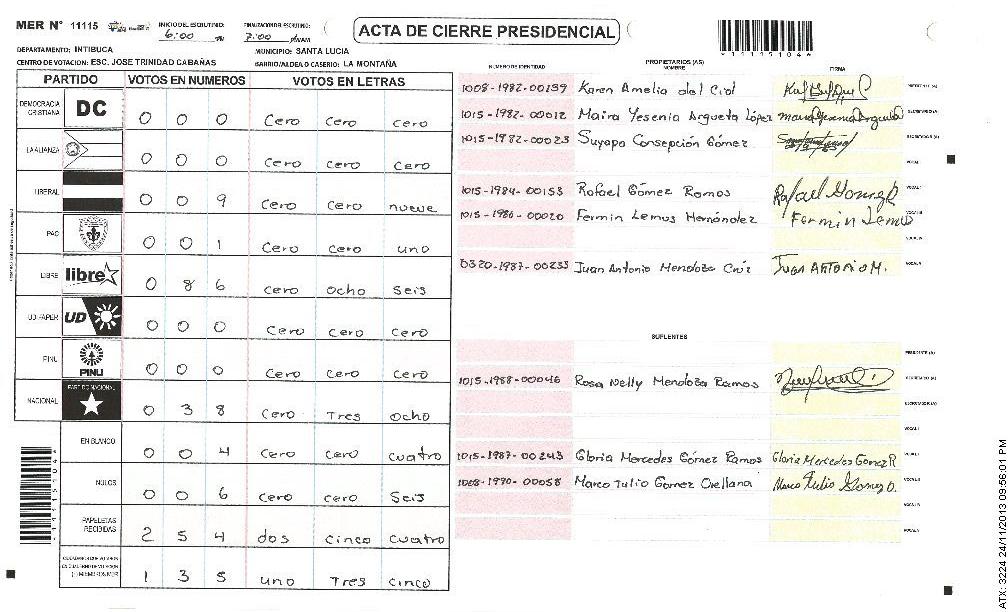 MER N° 11115
INICIO DEL ESCRUTINIO: 6:00
FINALIZACION DEL ESCRUTINIO: 7:00
ACTA DE CIERRE PRESIDENCIAL
DEPARTAMENTO: INTIBUCA
MUNICIPIO: SANTA LUCIA
CENTRO DE VOTACION: ESC. JOSE TRINIDAD CABAÑAS
BARRIO/ALDEA O CASERIO: LA MONTAÑA
PARTIDO VOTOS EN NUMEROS VOTOS EN LETRAS
DEMOCRACIA CRISTIANA DC 0 0 0 Cero Cero Cero
LA ALIANZA 0 0 0 Cero Cero Cero
LIBERAL 0 0 9 Cero Cero nueve
PAC 0 0 1 Cero Cero uno
LIBRE libre 0 8 6 Cero ocho Seis
UD FAPER UD 0 0 0 Cero Cero Cero
PINU PINU 0 0 0 Cero Cero Cero
NACIONAL PARTIDO NACIONAL 0 3 8 Cero Tres ocho
EN BLANCO 0 0 4 Cero Cero cuatro
NULOS 0 0 6 Cero Cero Seis
PAPELETAS RECIBIDAS 2 5 4 dos Cinco cuatro
1 3 5 uno Tres cinco
NUMERO DE IDENTIDAD PROPIETARIOS (AS) NOMBRE FIRMA
1008-1982-00239 Karen Amelia del Cid
1015-1982-00012 Maira Yesenia Argueta López
1015-1982-00023 Suyapa Consepción Gómez
1015-1984-00153 Rafael Gómez Ramos
1015-1986-00020 Fermin Lemus Hernández Fermin Lemus
0320-1987-00233 Juan Antonio Mendoza Cruz Juan ANTONIO M.
SUPLENTES
1015-1988-00046 Rosa Nelly Mendoza Ramos
1015-1987-00243 Gloria Mercedes Gómez Ramos Gloria Mercedes Gomez R
1008-1990-00058 Marco Tulio Gomez Orellana Marco Tulio Gomez O.
ATX: 3224 24/11/2013 09:56:01 PM